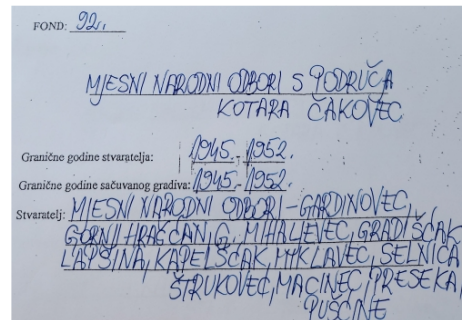 FOND: 92.
MJESNI NARODNI ODBORI S PODRUČA
KOTARA ČAKOVEC
Granične godine stvaratelja: 1945.-1952.
Granične godine sačuvanog gradiva: 1945.-1952.
Stvaratelj: MJESNI NARODNI ODBORI-GARDINOVEC,
GORNJI HRAŠĆAN, G. MIHALJEVEC, GRADIŠČAK
LAPŠINA, KAPELŠČAK, MIKLAVEC, SELNICA
ŠTRUKOVEC, MACINEC, PRESEKA,
PUŠĆINE